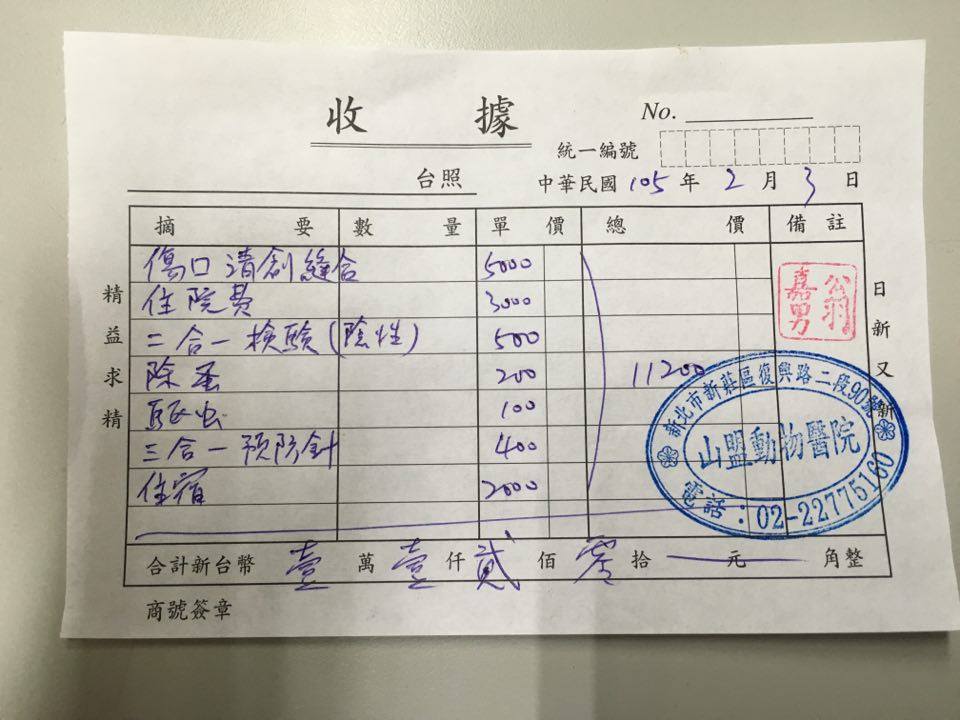 收據
No.
統一編號
台照
中華民國 105 年 2 月 3 日
摘要 數量 單價 總價 備註
傷口清創縫合 5000
住院費 3000
二合一檢驗(陰性) 500
除蚤 200 11200
驅虫 100
三合一預防針 400
住宿 2000
合計新台幣 壹 萬 壹 仟 貳 佰 零 拾 元 角整
商號簽章
精益求精
日新又新
翁嘉男
新北市新莊區復興路二段90號
山盟動物醫院
電話:02-22775160